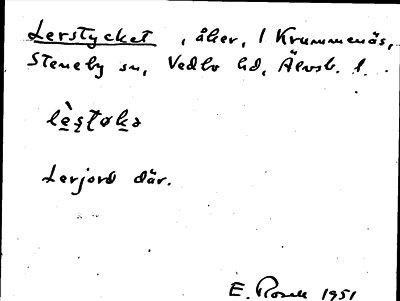 Lerstycket , åker, 1 Krummenäs,
Steneby sn, Vedbo hd, Älvsb. l.
lè̱ʂtøkə
Lerjord där.
E. Rosell 1951